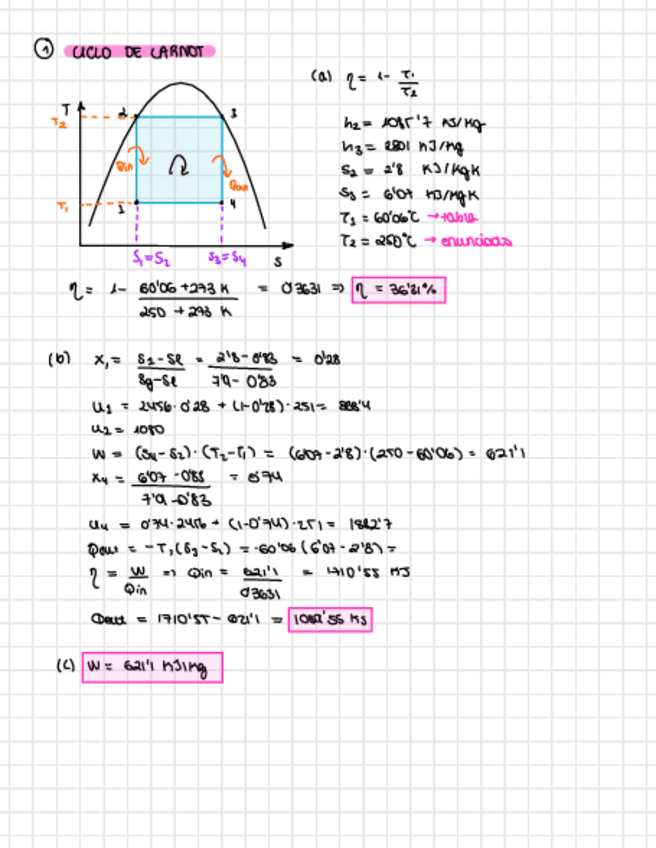 ① CICLO DE CARNOT
(a) η = 1- T₁/T₂
T
T₂
2
3
h₂ = 1085'7 KJ/Kg
h₃ = 2801 KJ/Kg
S₂ = 2'8 KJ/KgK
Qin
Qout
S₃ = 6'07 KJ/KgK
T₁
1
4
T₁ = 60'06°C → tabla
T₂ = 250°C → enunciado
S₁=S₂
S₃=S₄
S
η = 1- (60'06 + 273 K)/(250 + 273 K) = 0'3631 ⇒ η = 36'31%
(b) X₁ = (S₂-Sl)/(Sg-Sl) = (2'8-0'83)/(7'9-0'83) = 0'28
U₁ = 2456·0'28 + (1-0'28)·251 = 868'4
U₂ = 1080
W = (S₄-S₂)·(T₂-T₁) = (6'07-2'8)·(250-60'06) = 621'1
X₄ = (6'07-0'83)/(7'9-0'83) = 0'74
U₄ = 0'74·2456 + (1-0'74)·251 = 1882'7
Qout = -T₁(S₃-S₂) = -60'06 (6'07-2'8) =
η = W/Qin ⇒ Qin = 621'1/0'3631 = 1710'55 KJ
Qout = 1710'55 - 621'1 = KJ
(c) W = 621'1 KJ/Kg